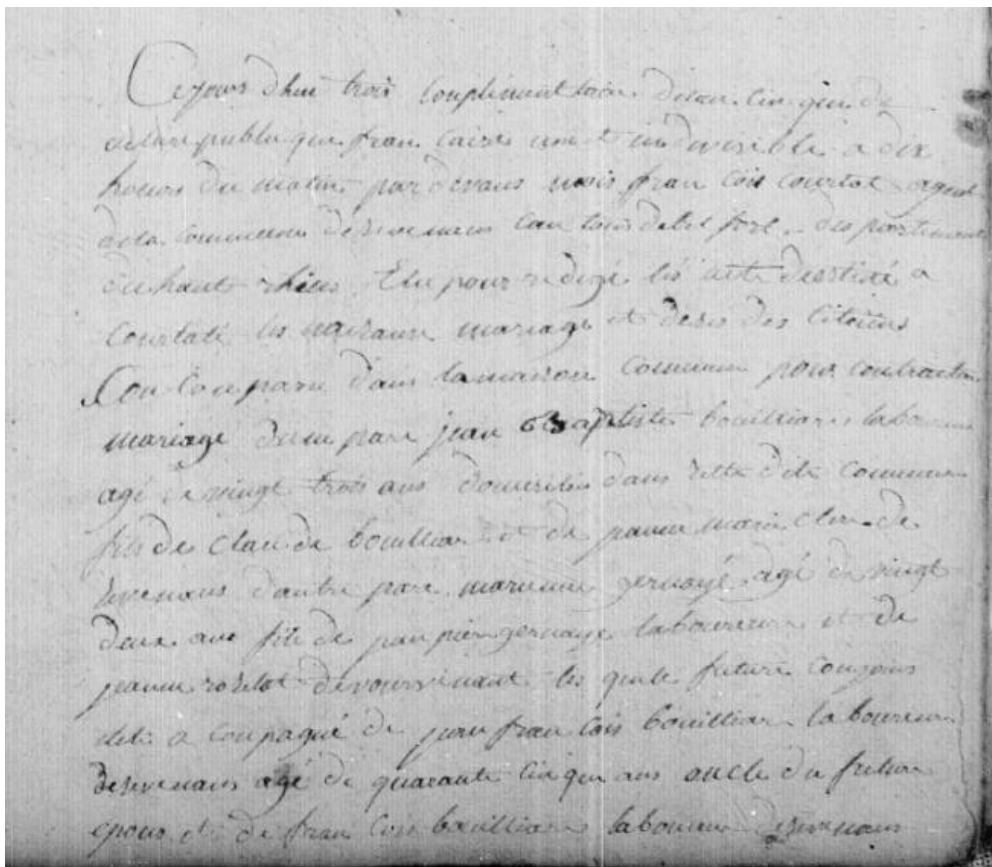 Cejourd'hui trois Complémentaire delan cinquede
delarepublique fran caise une et indivisible a dix
heures du matin pardevans mois fran cois courtot agent
dela commune desevenans can ton debel fort departement
du haut rhien Elu pour redigé les acte destiné a
Constaté les naisance mariage et deses des Citoiens
Con Comparu dans lamaison Commune pour contracter
mariage dune part jean Baptiste bouillian laboureur
agé de vingt trois ans domicilié dans cette dite Commune
fils de Claude bouillian et de jeanne marie de
sevenans dautre part marianne gervaye agé de vingt
deux ans file de jean piere gervaye laboureur et de
jeanne roselot devourvenant les quele future conjoins
etoit a compagné de jean fran cois bouillian laboureur
desevenans agé de quarante cinque ans oncle du future
epous et de fran cois bouillian laboureur desevenans